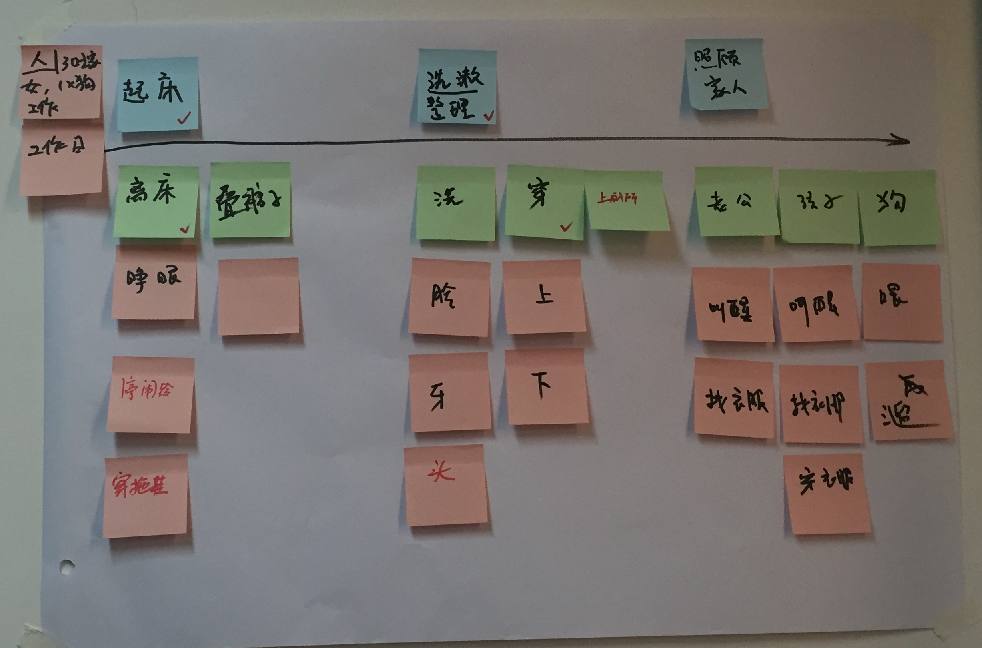 人 30岁
女，1×狗
工作
工作日
起床
洗漱
整理
照顾
家人
离床
叠被子
洗
穿
上厕所
老公
孩子
狗
睁眼
脸
上
叫醒
叫醒
喂
停闹铃
牙
下
找衣服
找衣服
遛
穿拖鞋
头
穿衣服